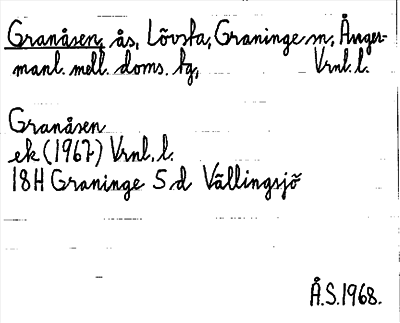 Granåsen, ås, Lövsta, Graninge sn, Ånger-
manl. mell. doms. fg, Vrnl. l.
Granåsen
ek (1967) Vrnl. l.
18H Graninge 5 d Vällingsjö
Å.S. 1968.